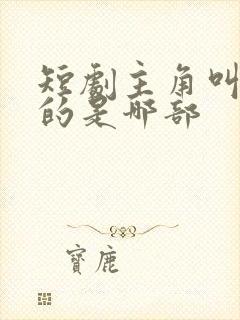 短劇主角叫
的是哪部
寶鹿